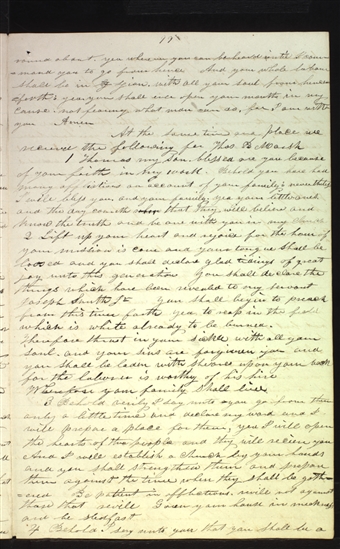 175
round about. yea wherever you can be heard until I com
mand you to go from hence And your whole labour
shall be in Zion. with all your soul from hence
forth & yea you shall ever open your mouth in my
cause not fearing what man can do, for I am with
you Amen
At the same time and place we
recieve the following for Thos B Marsh
1 Thomas my son. blessed are you because
of your faith in my work. Behold you have had
many afflictions on account of your family; nevertheless
I will bless you, and your family; yea your little ones
and the day cometh that they will believe and
know the truth and be one with you in my church
2 Lift up your heart and rejoice for the hour of
your mission is come and your tongue shall be
loosed and you shall declare glad tidings of great
joy unto this generation You shall declare the
things which have been revealed to my servant
Joseph Smith Jr You shall begin to preach
from this time forth yea to reap in the field
which is white already to be burned.
Therefore thrust in your sickle with all your
soul. and your sins are forgiven you and
you shall be laden with sheaves upon your back
for the laborer is worthy of his hire
Wherefore your family shall live
3 Behold verily I say unto you go from them
only a little time and declare my word and I
will prepare a place for them; yea I will open
the hearts of the people and they will recieve you
And I will establish a Church by your hands
and you shall strengthen them and prepare
them against the time when they shall be gath
ered Be patient in afflictions. revile not against
those that revile Govern your house in meekness
and be stedfast
4 Behold I say unto you that you shall be a